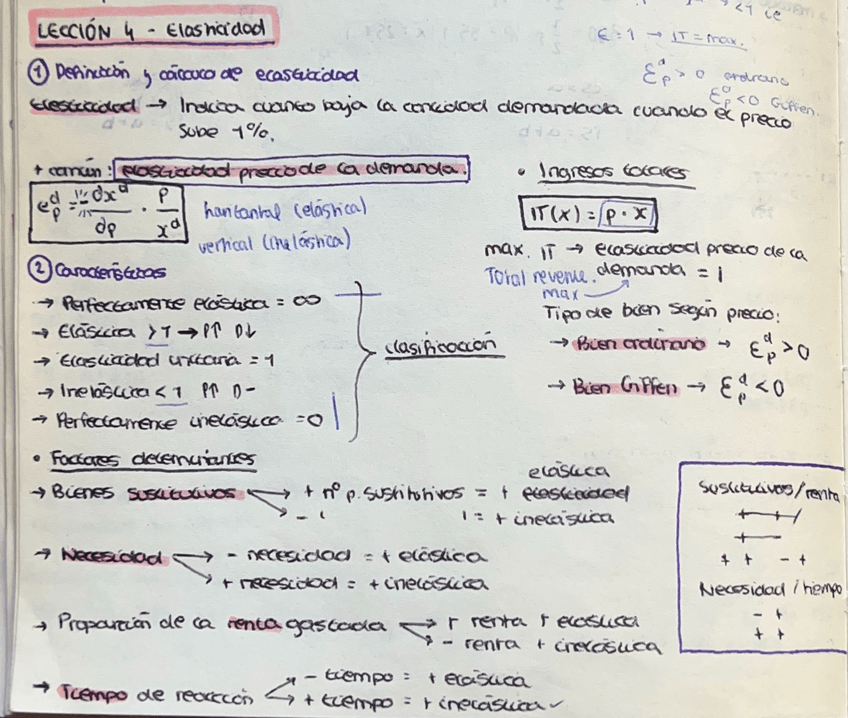 <1 ie
LECCIÓN 4 - Elasticidad
E=1 → IT=max.
① Definición y cálculo de elasticidad
Ɛᵈₚ > 0 ordinario
Ɛᵈₚ <0 Giffen.
Elasticidad → Indica cuanto baja la cantidad demandada cuando el precio
sube 1%.
+ común: elasticidad precio de la demanda.
eᵈₚ = "-" dxᵈ/dp · P/xᵈ
horizontal (elástica)
vertical (inelástica)
• Ingresos totales
IT(x) = p · x
max. IT → elasticidad precio de la
demanda = 1
Total revenue
max
② Características
→ Perfectamente elástica = ∞ —
→ Elástica >1 → P↑ D↓
→ Elasticidad unitaria = 1
→ Inelástica < 1 P↑ D-
→ Perfectamente inelástica = 0 |
clasificación
Tipo de bien según precio:
→ Bien ordinario → Ɛᵈₚ > 0
→ Bien Giffen → Ɛᵈₚ < 0
• Factores determinantes
→ Bienes sustitutivos → + nº p. sustitutivos = + elasticidad
elástica
→ - ' ' = + inelástica
→ Necesidad → - necesidad = + elástica
→ + necesidad = + inelástica
→ Proporción de la renta gastada → + renta + elástica
→ - renta + inelástica
→ Tiempo de reacción → - tiempo = + elástica
→ + tiempo = + inelástica
Sustitutivos/renta
+ +/
+ -
+ + - +
Necesidad / tiempo
- +
+ +